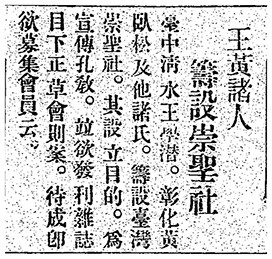 王黃諸人
籌設崇聖社
臺中清水王學潛。彰化黃
臥松及他諸氏。籌設臺灣
崇聖社。其設立目的。爲
宣傳孔敎。並欲發刊雜誌
目下正草會則案。待成卽
欲募集會員云。